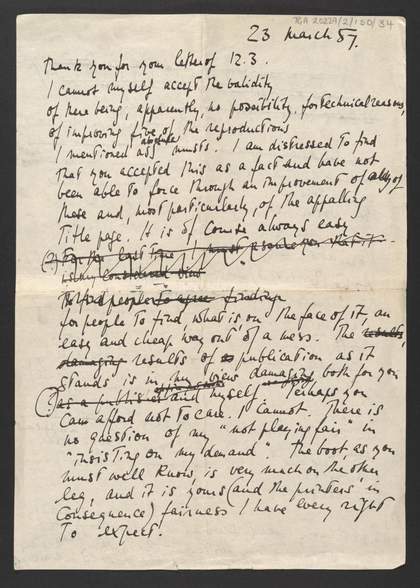 TGA 20229/2/150/34
23 March 57.
Thank you for your letter of 12.3.
I cannot myself accept the validity
of there being, apparently, no possibility, for technical reasons,
of improving five of the reproductions
I mentioned as absolute musts. I am distressed to find
that you accepted this as a fact and have not
been able to force through an improvement of all of
these and, most particularly, of the appalling
title page. It is of course always easy
(?) For the last time, I must that it
is my considered view
people to agree finding
for people to find what is on the face of it, an
easy and cheap 'way out' of a mess. The results,
damaging results of publication as it
stands is in my view damaging both for you
(?) as a publisher and myself. Perhaps you
can afford not to care. I cannot. There is
no question of my "not playing fair" in
"insisting on my demand". The boot, as you
must well know, is very much on the other
leg, and it is yours (and the printers' in
consequence) fairness I have every right
to expect.